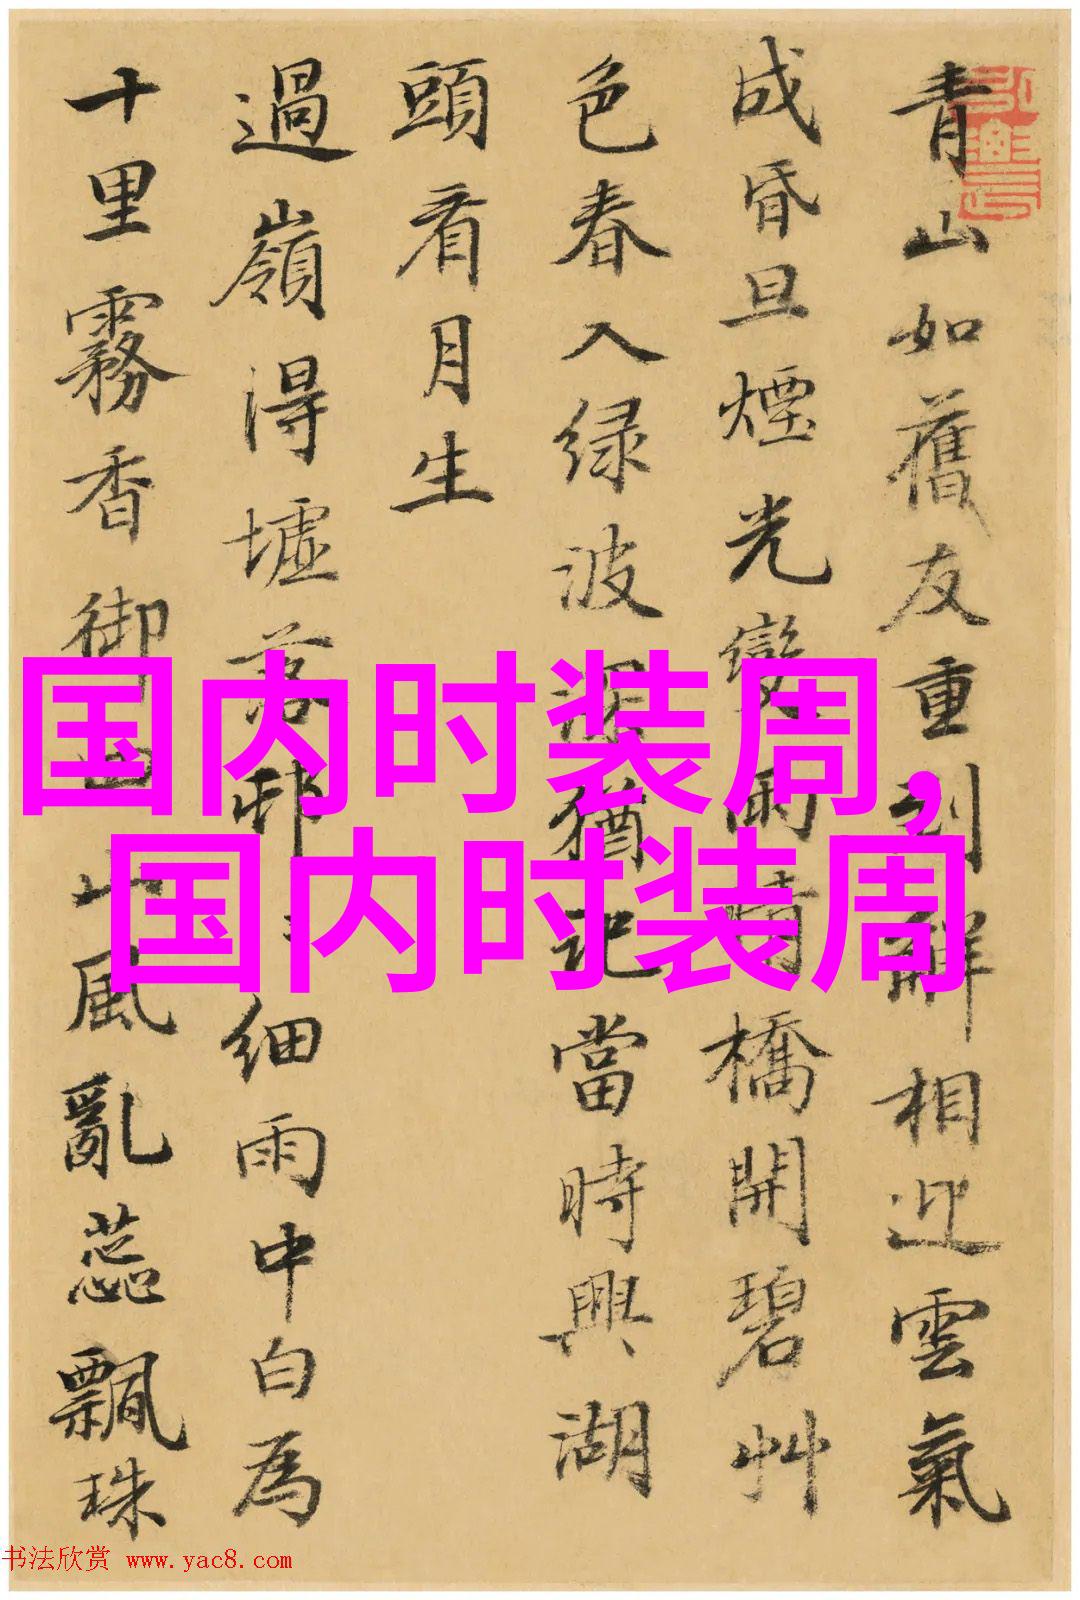 青山如舊友重到解相迎雲氣
成昏旦煙光變雨晴橋開碧艸
色春入绿波深猶記當時興湖
頭看月生
過嶺得墟落邨細雨中白為
十里霧香御山風亂蕊飄珠
国内时装周,
国内时装周
书法欣赏 www.yac8.com